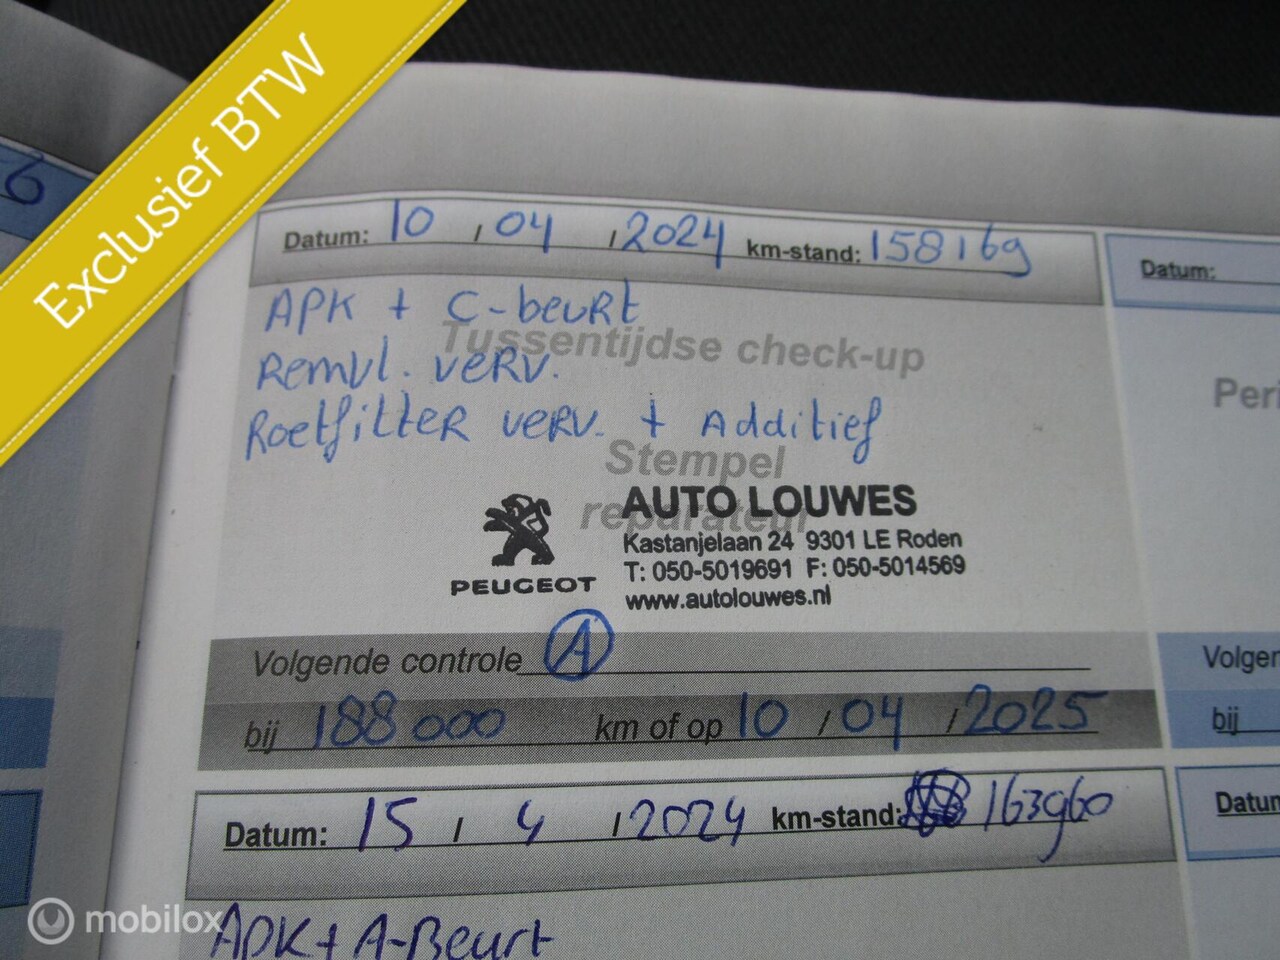 Exclusief BTW
6
Datum: 10 / 04 / 2024 km-stand: 158169
Datum:
APK + C-beurt
Tussentijdse check-up
Remvl. verv.
Peri
Roetfilter verv. + Additief
Stempel
reparateur
AUTO LOUWES
Kastanjelaan 24 9301 LE Roden
T: 050-5019691 F: 050-5014569
PEUGEOT
www.autolouwes.nl
Volgende controle A
Volgen
bij 188000 km of op 10 / 04 / 2025
bij
Datum: 15 / 4 / 2024 km-stand: 163960
Datum
APK + A-Beurt
mobilox